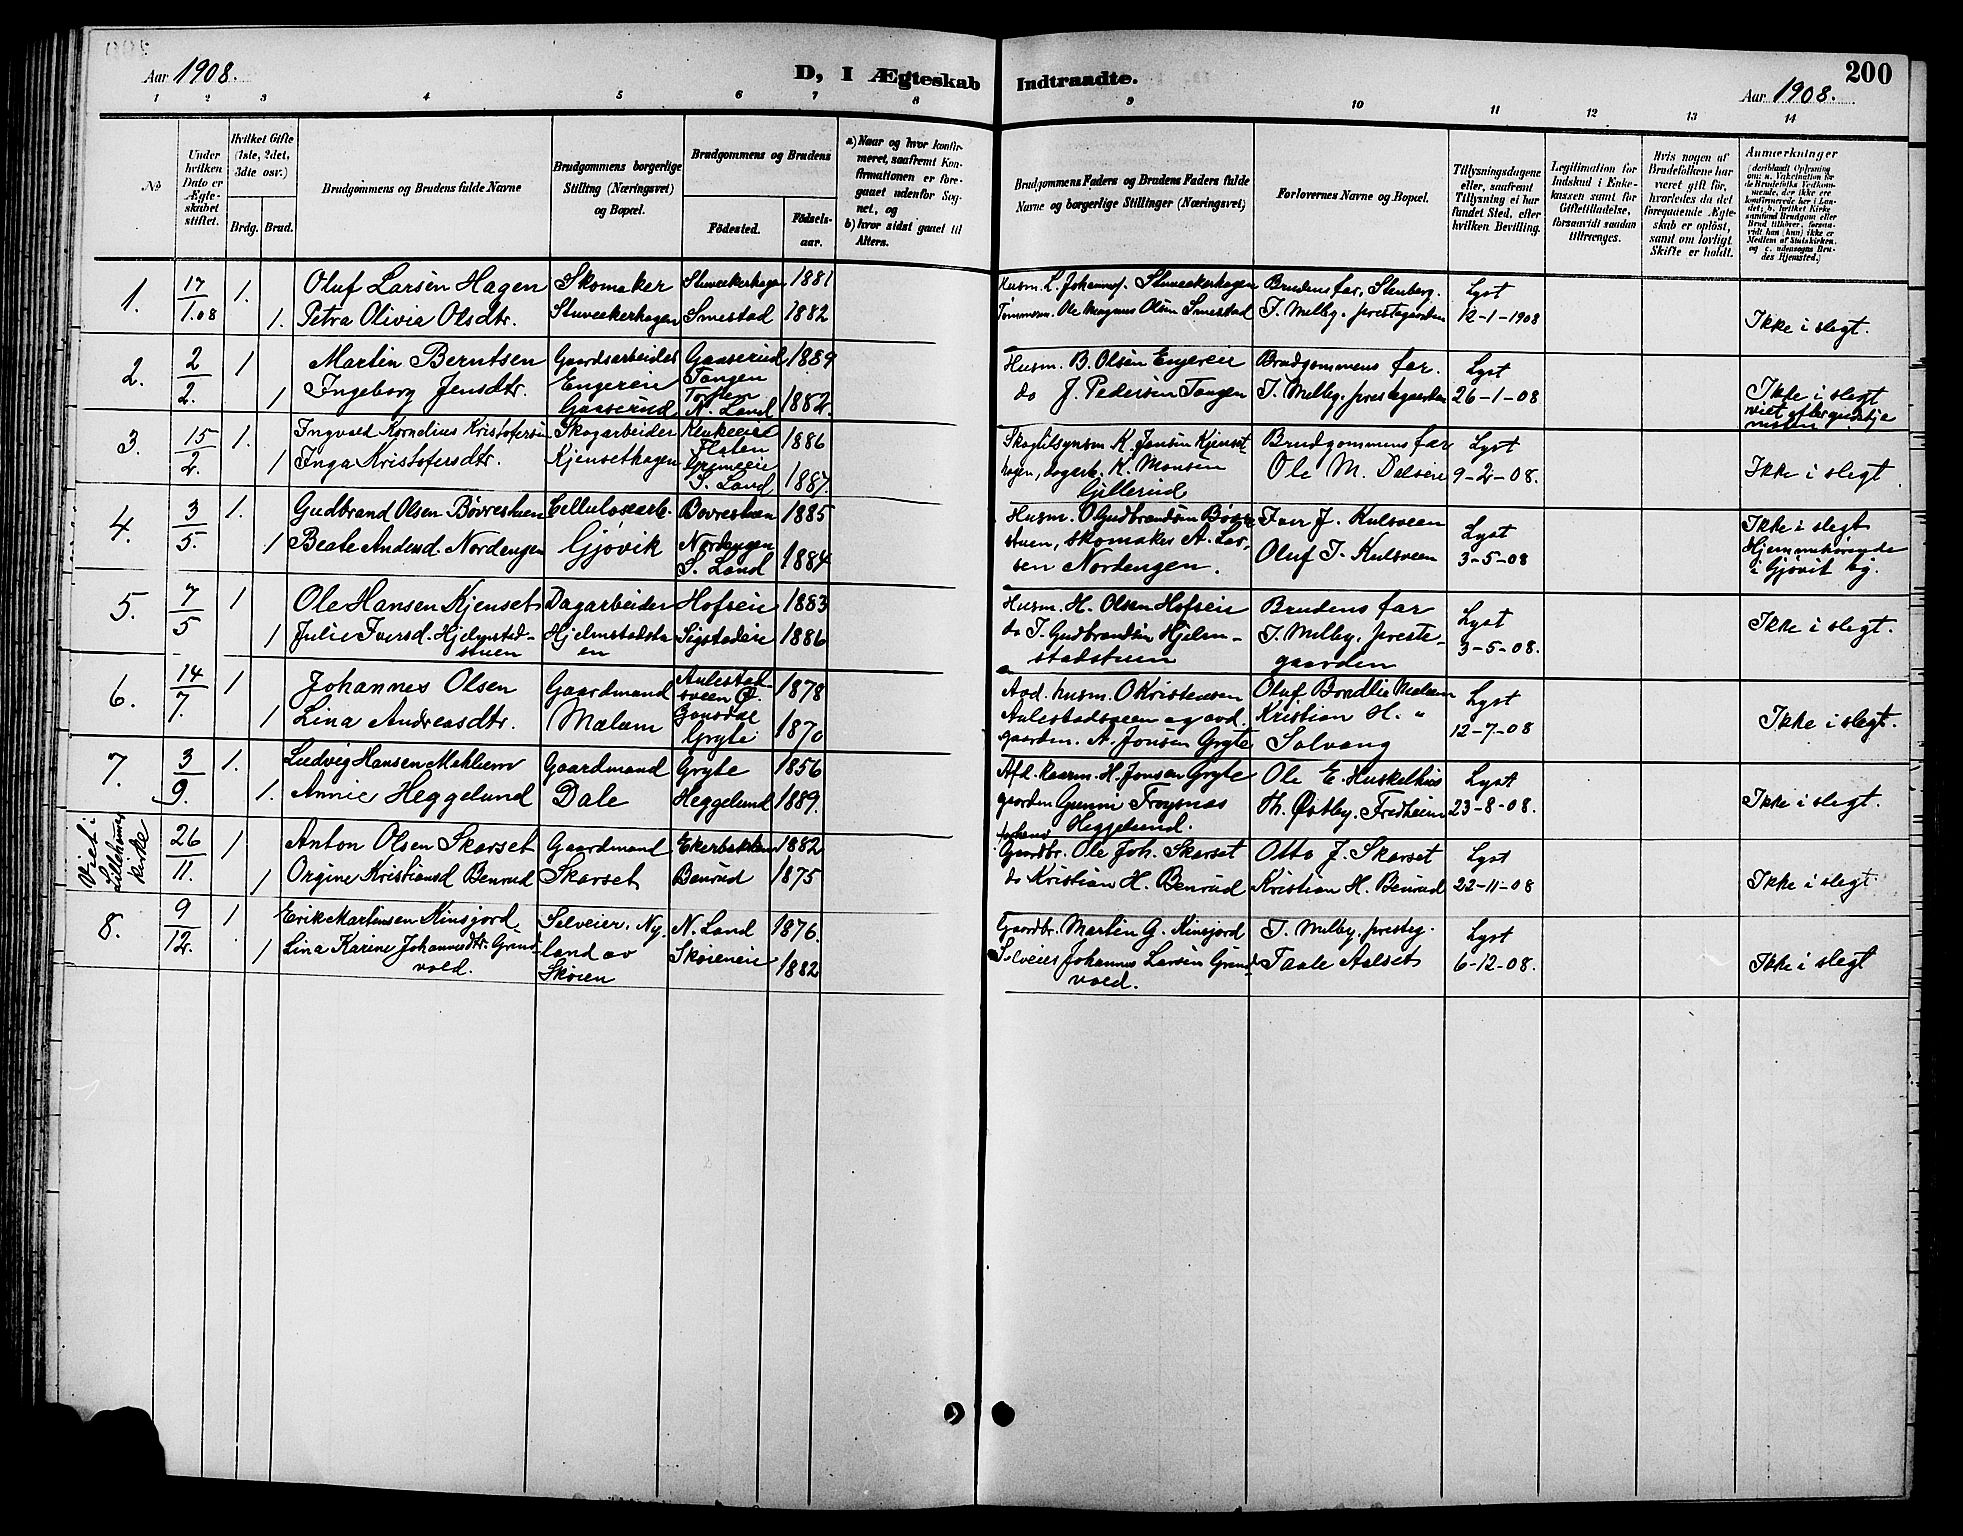 Aar 1908.
D, I Ægteskab Indtraadte.
200
Aar 1908.
1 2 3 4 5 6 7 8 9 10 11 12 13 14
No
Under hvilken Dato er Ægteskabet stiftet.
Hvilket Gifte (1ste, 2det, 3die osv.)
Brdg. Brud.
Brudgommens og Brudens fulde Navne
Brudgommens borgerlige Stilling (Næringsvei) og Bopæl.
Brudgommens og Brudens
Fødested.
Fødselsaar.
a) Naar og hvor konfirmeret, saafremt Konfirmationen er foregaaet udenfor Sognet, og
b) hvor sidst gaaet til Alters.
Brudgommens Faders og Brudens Faders fulde Navne og borgerlige Stillinger (Næringsvei)
Forlovernes Navne og Bopæl.
Tillysningsdagene eller, saafremt Tillysning ei har fundet Sted, efter hvilken Bevilling.
Legitimation for Indskud i Enkekassen samt for Giftetilladelse, forsaavidt saadan tiltrænges.
Hvis nogen af Brudefolkene har været gift før, hvorledes da det foregaaende Ægteskab er opløst, samt om lovligt Skifte er holdt.
Anmærkninger
1. 17/1.08 1. Oluf Larsen Hagen Skomaker Stuveekerhagen 1881 Husm. L. Johannes. Stuveekerhagen Brudens far, Stenberg. Lyst
1. Petra Olivia Olsdtr. Stuveekerhagen Smestad 1882 Tømmerm. Ole Magnus Olsen Smestad J. Melby, prestegaarden 12-1-1908 Ikke i slegt.
2. 2/2. 1 Martin Berntsen Gaardsarbeider Gaaserud 1889 Husm. B. Olsen Engereie Brudgommens far. Lyst
1 Ingeborg Jensdtr. Engereie Gaaserud Tangen Torpen N. Land 1882. do J. Pedersen Tangen J. Melby, prestegaarden 26-1-08 Ikke i slegt
viet efter gudstjenesten
3. 15/2. 1. Ingvald Kornelius Kristofersen Skogarbeider Flaten 1886 Skogtilsynsm K. Jensen Kjenset- Brudgommens far Lyst
1 Inga Kristofersdtr. Kjensethagen S. Land 1887. hagen, dagarb. K. Monsen Gillerud Ole M. Delsen 9-2-08. Ikke i slegt
4. 3/5. 1. Gudbrand Olsen Bøvrestuen Cellulosearb. Bøvrestuen 1885 Husm. O Gudbrandsen Bøvre- Iver J. Kulsveen Lyst Ikke i slegt
1 Beate Andersd. Nordengen Gjøvik Nordengen S. Land 1884 stuen, skomaker A. Lar- Oluf J. Kulsveen 3-5-08 Hjemmehørende
sen Nordengen. i Gjøvik by.
5. 7/5 1 Ole Hansen Kjenset Dagarbeider Hofseie 1883 Husm. H. Olsen Hofseie Brudens far Lyst
1 Julie Iversd. Hjelmsted- Hjelmstadstu Sigstadeie 1886 do I. Gudbrandsen Hjelm- J. Melby, preste- 3-5-08. Ikke i slegt.
stuen en stadstuen gaarden
6. 14/7. 1 Johannes Olsen Gaardmand Aulestad sveen Ø. 1878 Avd. husm. O Kristensen Oluf Bradlie Mælum Lyst
1 Lina Andreasdtr. Mælum Gausdal Gryte 1870 Aulestadsveen og avd. Kristian H. " 12-7-08 Ikke i slegt.
gaardm. A. Jonsen Gryte Solvang
7. 3/9. 1. Ludvig Hansen Mehlum Gaardmand Gryte 1856 Afd. H. Jonsen Gryte Ole E. Huskelhus Lyst
1. Annie Heggelund Dale Heggelund 1889. gaarden Gunni Heggelund. Th. Østby, Fredheim 23-8-08. Ikke i slegt.
Viet i Lillehamers kirke 26/11. 1 Anton Olsen Skarset Gaardmand Ekerbakken 1882 Gaardbr. Ole Joh. Skarset Otto J. Skarset Lyst
1 Orgine Kristiansd Benrud Skarset Benrud 1875 do Kristian H. Benrud Kristian H. Benrud 22-11-08 Ikke i slegt
8. 9/12. 1 Erik Martinsen Kinsjord Selveier. Ny- N. Land 1876. Gaardbr. Martin G. Kinsjord J. Melby, presteg. Lyst
1 Lina Karine Johannesdtr. Grind- land av Skøieneie 1882 Selveier Johannes Larsen Grind- Taale Aalset 6-12-08. Ikke i slegt
vold. Skøien vold.